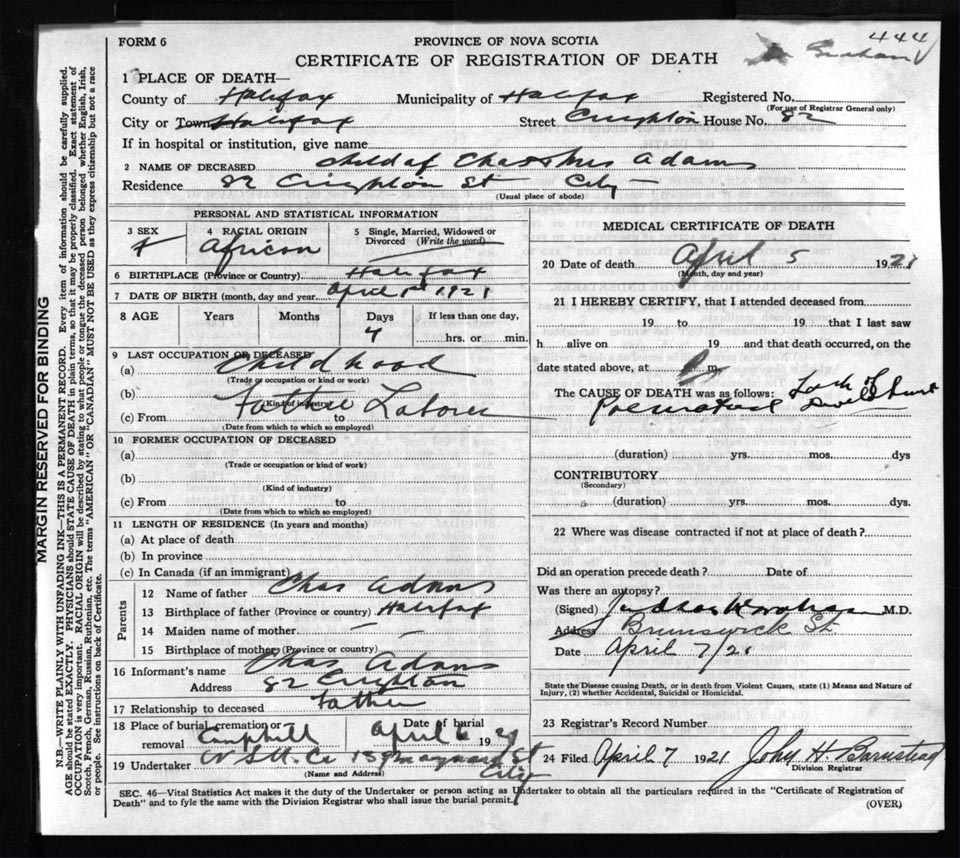 444
FORM 6
PROVINCE OF NOVA SCOTIA
Graham
CERTIFICATE OF REGISTRATION OF DEATH
1 PLACE OF DEATH—
County of Halifax Municipality of Halifax Registered No.
(For use of Registrar General only)
City or Town Halifax Street Creighton House No. 82
If in hospital or institution, give name
2 NAME OF DECEASED Child of Chas & Mrs Adams
Residence 82 Creighton St City
(Usual place of abode)
PERSONAL AND STATISTICAL INFORMATION
3 SEX 4 RACIAL ORIGIN 5 Single, Married, Widowed or Divorced (Write the word)
f African
6 BIRTHPLACE (Province or Country) Halifax
7 DATE OF BIRTH (month, day and year) April 1st 1921
8 AGE Years Months Days If less than one day,
4 hrs. or min.
9 LAST OCCUPATION OF DECEASED
(a) Childhood
(Trade or occupation or kind or work)
(b)
(Kind of industry)
(c) From to
Father Laborer
(Date from which to which so employed)
10 FORMER OCCUPATION OF DECEASED
(a)
(Trade or occupation or kind of work)
(b)
(Kind of industry)
(c) From to
(Date from which to which so employed)
11 LENGTH OF RESIDENCE (In years and months)
(a) At place of death
(b) In province
(c) In Canada (if an immigrant)
Parents
12 Name of father Chas Adams
13 Birthplace of father (Province or country) Halifax
14 Maiden name of mother — —
15 Birthplace of mother (Province or country)
16 Informant's name Chas Adams
Address 82 Creighton
17 Relationship to deceased Father
18 Place of burial, cremation or removal Camphill Date of burial April 6 1921
19 Undertaker Maynard St
(Name and Address) City
MEDICAL CERTIFICATE OF DEATH
20 Date of death April 5 1921
(Month, day and year)
21 I HEREBY CERTIFY, that I attended deceased from
19 to 19 that I last saw
h alive on 19 and that death occurred, on the
date stated above, at m.
The CAUSE OF DEATH was as follows: Lack of
Development
(duration) yrs. mos. dys
CONTRIBUTORY
(Secondary)
(duration) yrs. mos. dys.
22 Where was disease contracted if not at place of death?
Did an operation precede death? Date of
Was there an autopsy?
(Signed) M.D.
Address Brunswick St
Date April 7/21
State the Disease causing Death, or in death from Violent Causes, state (1) Means and Nature of
Injury, (2) whether Accidental, Suicidal or Homicidal.
23 Registrar's Record Number
24 Filed April 7 1921 John H. Barnstead
Division Registrar
SEC. 46—Vital Statistics Act makes it the duty of the Undertaker or person acting as Undertaker to obtain all the particulars required in the "Certificate of Registration of
Death" and to fyle the same with the Division Registrar who shall issue the burial permit.
(OVER)
MARGIN RESERVED FOR BINDING
N.B.—WRITE PLAINLY WITH UNFADING INK—THIS IS A PERMANENT RECORD. Every item of information should be carefully supplied.
AGE should be stated EXACTLY. PHYSICIANS should STATE CAUSE OF DEATH in plain terms, so that it may be properly classified. Exact statement of
OCCUPATION is very important. RACIAL ORIGIN will be described by stating to what people or tongue the deceased person belonged whether English, Irish,
Scotch, French, German, Russian, Ruthenian, etc. The terms "AMERICAN" OR "CANADIAN" MUST NOT BE USED as they express citizenship but not a race
or people. See instructions on back of Certificate.